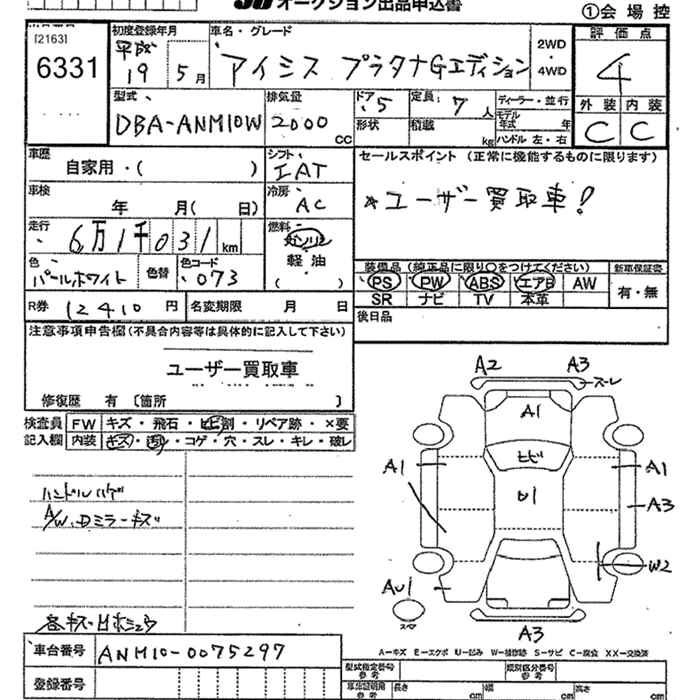 オークション出品申込書
①会場控
[2163]
6331
初度登録年月
平成
19 5月
車名・グレード
アイシス プラタナGエディション
2WD
・
4WD
評価点
4
外装 内装
C C
型式
DBA-ANM10W
排気量
2000 CC
ドア 5
形状
定員 7人
積載 kg
ディーラー・並行
モデル年式 年
ハンドル 左・右
車歴
自家用・( )
シフト
IAT
セールスポイント (正常に機能するものに限ります)
*ユーザー買取車!
車検
年 月( 日)
冷房
AC
走行
6万1千031km
燃料
ガソリン
軽油
( )
色
パールホワイト
色替
色コード
073
装備品 (純正品に限り○をつけてください)
PS PW ABS エアB AW
SR ナビ TV 本革
新車保証書
有・無
R券 12410 円
名変期限 月 日
後日品
注意事項申告欄(不具合内容等は具体的に記入して下さい)
ユーザー買取車
修復歴 有〔箇所 〕
検査員
記入欄
FW キズ・飛石・ヒビ割・リペア跡・×要
内装 キズ・汚れ・コゲ・穴・スレ・キレ・破レ
ハンドルハゲ
A/W、Dミラーキズ
A2 A3
スーレ
A1
ヒビ
A1 A1
U1
A3
W2
AU1
スペア
A3
A-キズ E-エクボ U-凹み W-補修跡 S-サビ C-腐食 XX-交換済
車台番号 ANM10-0075297
登録番号
型式指定番号
類別区分番号
車庫証明用参考 長さ cm 幅参考 cm 高さ参考 cm